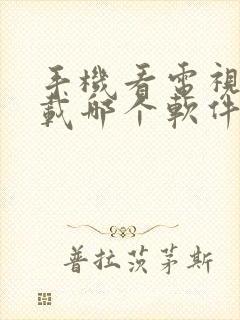 手機看電視
載哪个軟件
普拉茨茅斯